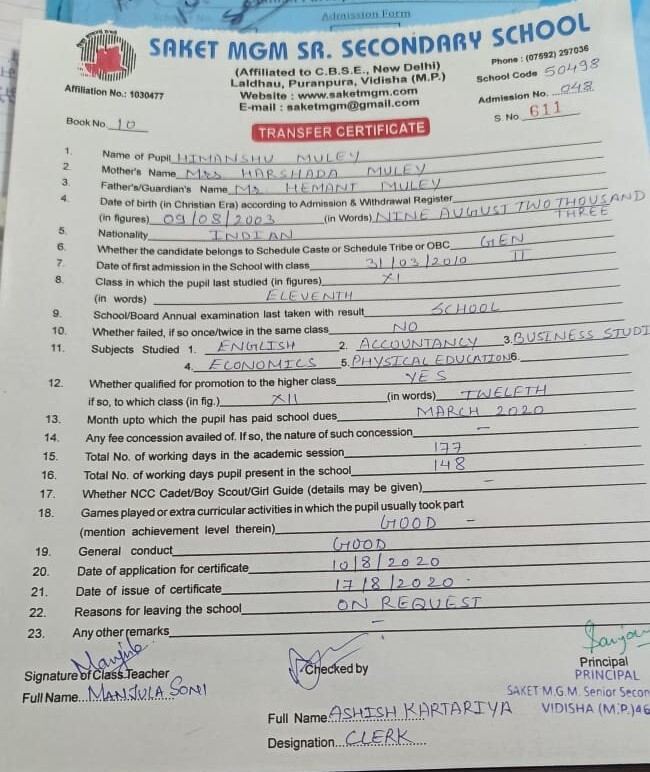 Admission Form
SAKET MGM SR. SECONDARY SCHOOL
(Affiliated to C.B.S.E., New Delhi)
Laldhau, Puranpura, Vidisha (M.P.)
Website : www.saketmgm.com
E-mail : saketmgm@gmail.com
Phone : (07592) 297036
School Code 50498
Admission No. 048
S. No. 611
Affiliation No.: 1030477
Book No. 10
TRANSFER CERTIFICATE
1. Name of Pupil HIMANSHU MULEY
2. Mother's Name Mrs HARSHADA MULEY
3. Father's/Guardian's Name Mr. HEMANT MULEY
4. Date of birth (in Christian Era) according to Admission & Withdrawal Register
(in figures) 09/08/2003 (in Words) NINE AUGUST TWO THOUSAND THREE
5. Nationality INDIAN
6. Whether the candidate belongs to Schedule Caste or Schedule Tribe or OBC GEN
7. Date of first admission in the School with class 31/03/2010 II
8. Class in which the pupil last studied (in figures) XI
(in words) ELEVENTH
9. School/Board Annual examination last taken with result SCHOOL
10. Whether failed, if so once/twice in the same class NO
11. Subjects Studied 1. ENGLISH 2. ACCOUNTANCY 3. BUSINESS STUDI
4. ECONOMICS 5. PHYSICAL EDUCATION 6.
12. Whether qualified for promotion to the higher class YES
if so, to which class (in fig.) XII (in words) TWELFTH
13. Month upto which the pupil has paid school dues MARCH 2020
14. Any fee concession availed of. If so, the nature of such concession —
15. Total No. of working days in the academic session 177
16. Total No. of working days pupil present in the school 148
17. Whether NCC Cadet/Boy Scout/Girl Guide (details may be given) —
18. Games played or extra curricular activities in which the pupil usually took part
(mention achievement level therein) GOOD —
19. General conduct GOOD
20. Date of application for certificate 10/8/2020
21. Date of issue of certificate 17/8/2020
22. Reasons for leaving the school ON REQUEST
23. Any other remarks —
Manjula
Signature of Class Teacher
Full Name... MANJULA SONI
Checked by
Full Name ASHISH KARTARIYA
Designation... CLERK
Principal
PRINCIPAL
SAKET M.G.M. Senior Secon
VIDISHA (M.P.)46